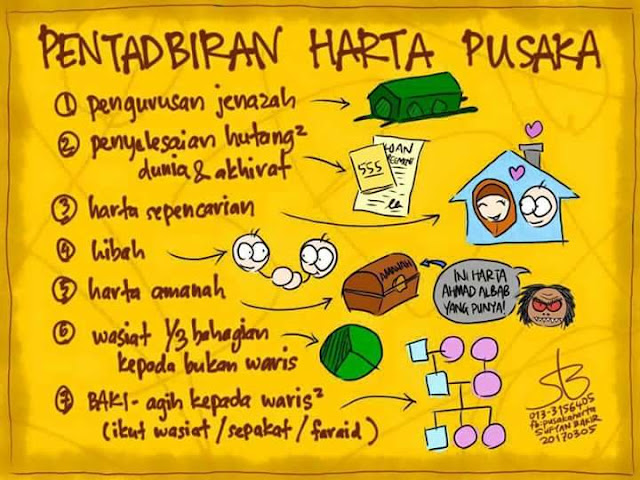 PENTADBIRAN HARTA PUSAKA
1 pengurusan jenazah
2 penyelesaian hutang²
dunia & akhirat
LOAN
555
3 harta sepencarian
4 hibah
5 harta amanah
AMANAH
INI HARTA
AHMAD ALBAB
YANG PUNYA!
6 wasiat 1/3 bahagian
kepada bukan waris
7 BAKI - agih kepada waris²
(ikut wasiat / sepakat / faraid)
013-3156405
fb:pusakaharta
SUFYAN BAKIR
20170305